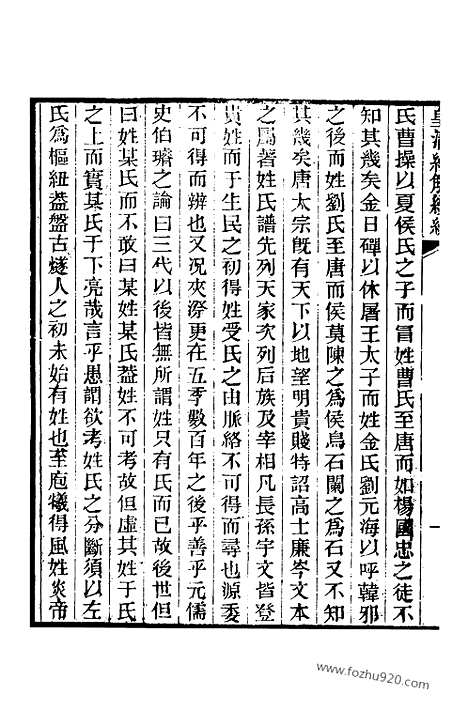 皇清經解續編
氏曹操以夏侯氏之子而冒姓曹氏至唐而如楊國忠之徒不
知其幾矣金日磾以休屠王太子而姓金氏劉元海以呼韓邪
之後而姓劉氏至唐而侯莫陳之爲侯烏石闌之爲石又不知
其幾矣唐太宗旣有天下以地望明貴賤特詔高士廉岑文本
之屬著姓氏譜先列天家次列后族及宰相凡長孫宇文皆登
貴姓而于生民之初得姓受氏之由脈絡不可得而尋也源委
不可得而辨也又况夾漈更在五季數百年之後乎善乎元儒
史伯璿之論曰三代以後皆無所謂姓只有氏而已故後世但
曰姓某氏而不敢曰某姓某氏蓋姓不可考故但虛其姓于氏
之上而實某氏于下亮哉言乎愚謂欲考姓氏之分斷須以左
氏爲樞紐蓋盤古燧人之初未始有姓也至庖犧得風姓炎帝
一
www.fozhu920.com